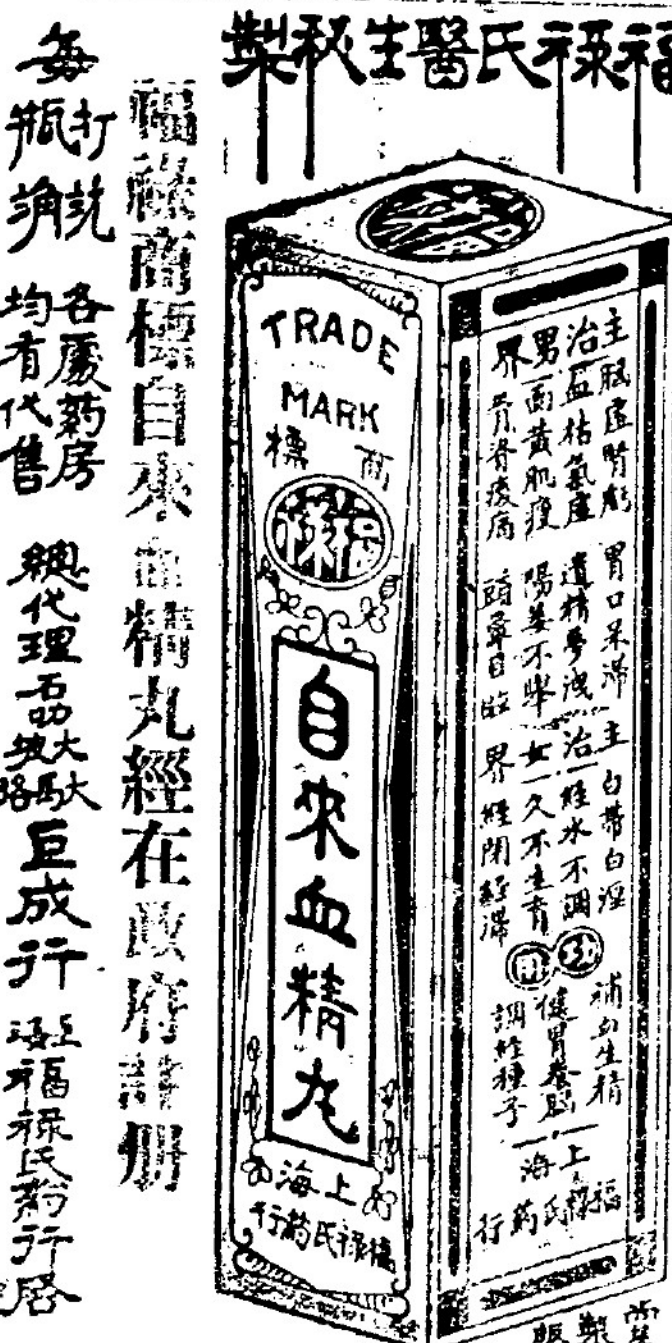 福祿氏醫生秘製
TRADE
MARK
商標
福祿
自來血精丸
上海
福祿氏药行
主治男界
腦虛腎虧
血枯氣虛
面黃肌瘦
骨脊痠痛
胃口呆滯
遺精夢洩
陽萎不舉
頭暈目眩
主治女界
白帶白淫
經水不調
久不生育
經閉經滯
功能
補血生精
健胃養腦
調經種子
上海
福祿氏药行
福祿商標自來血精丸經在政府註册
每打
瓶
各處药房
均有代售
總代理
叻大馬
坡大
路
巨成行
上海福祿氏药行啓